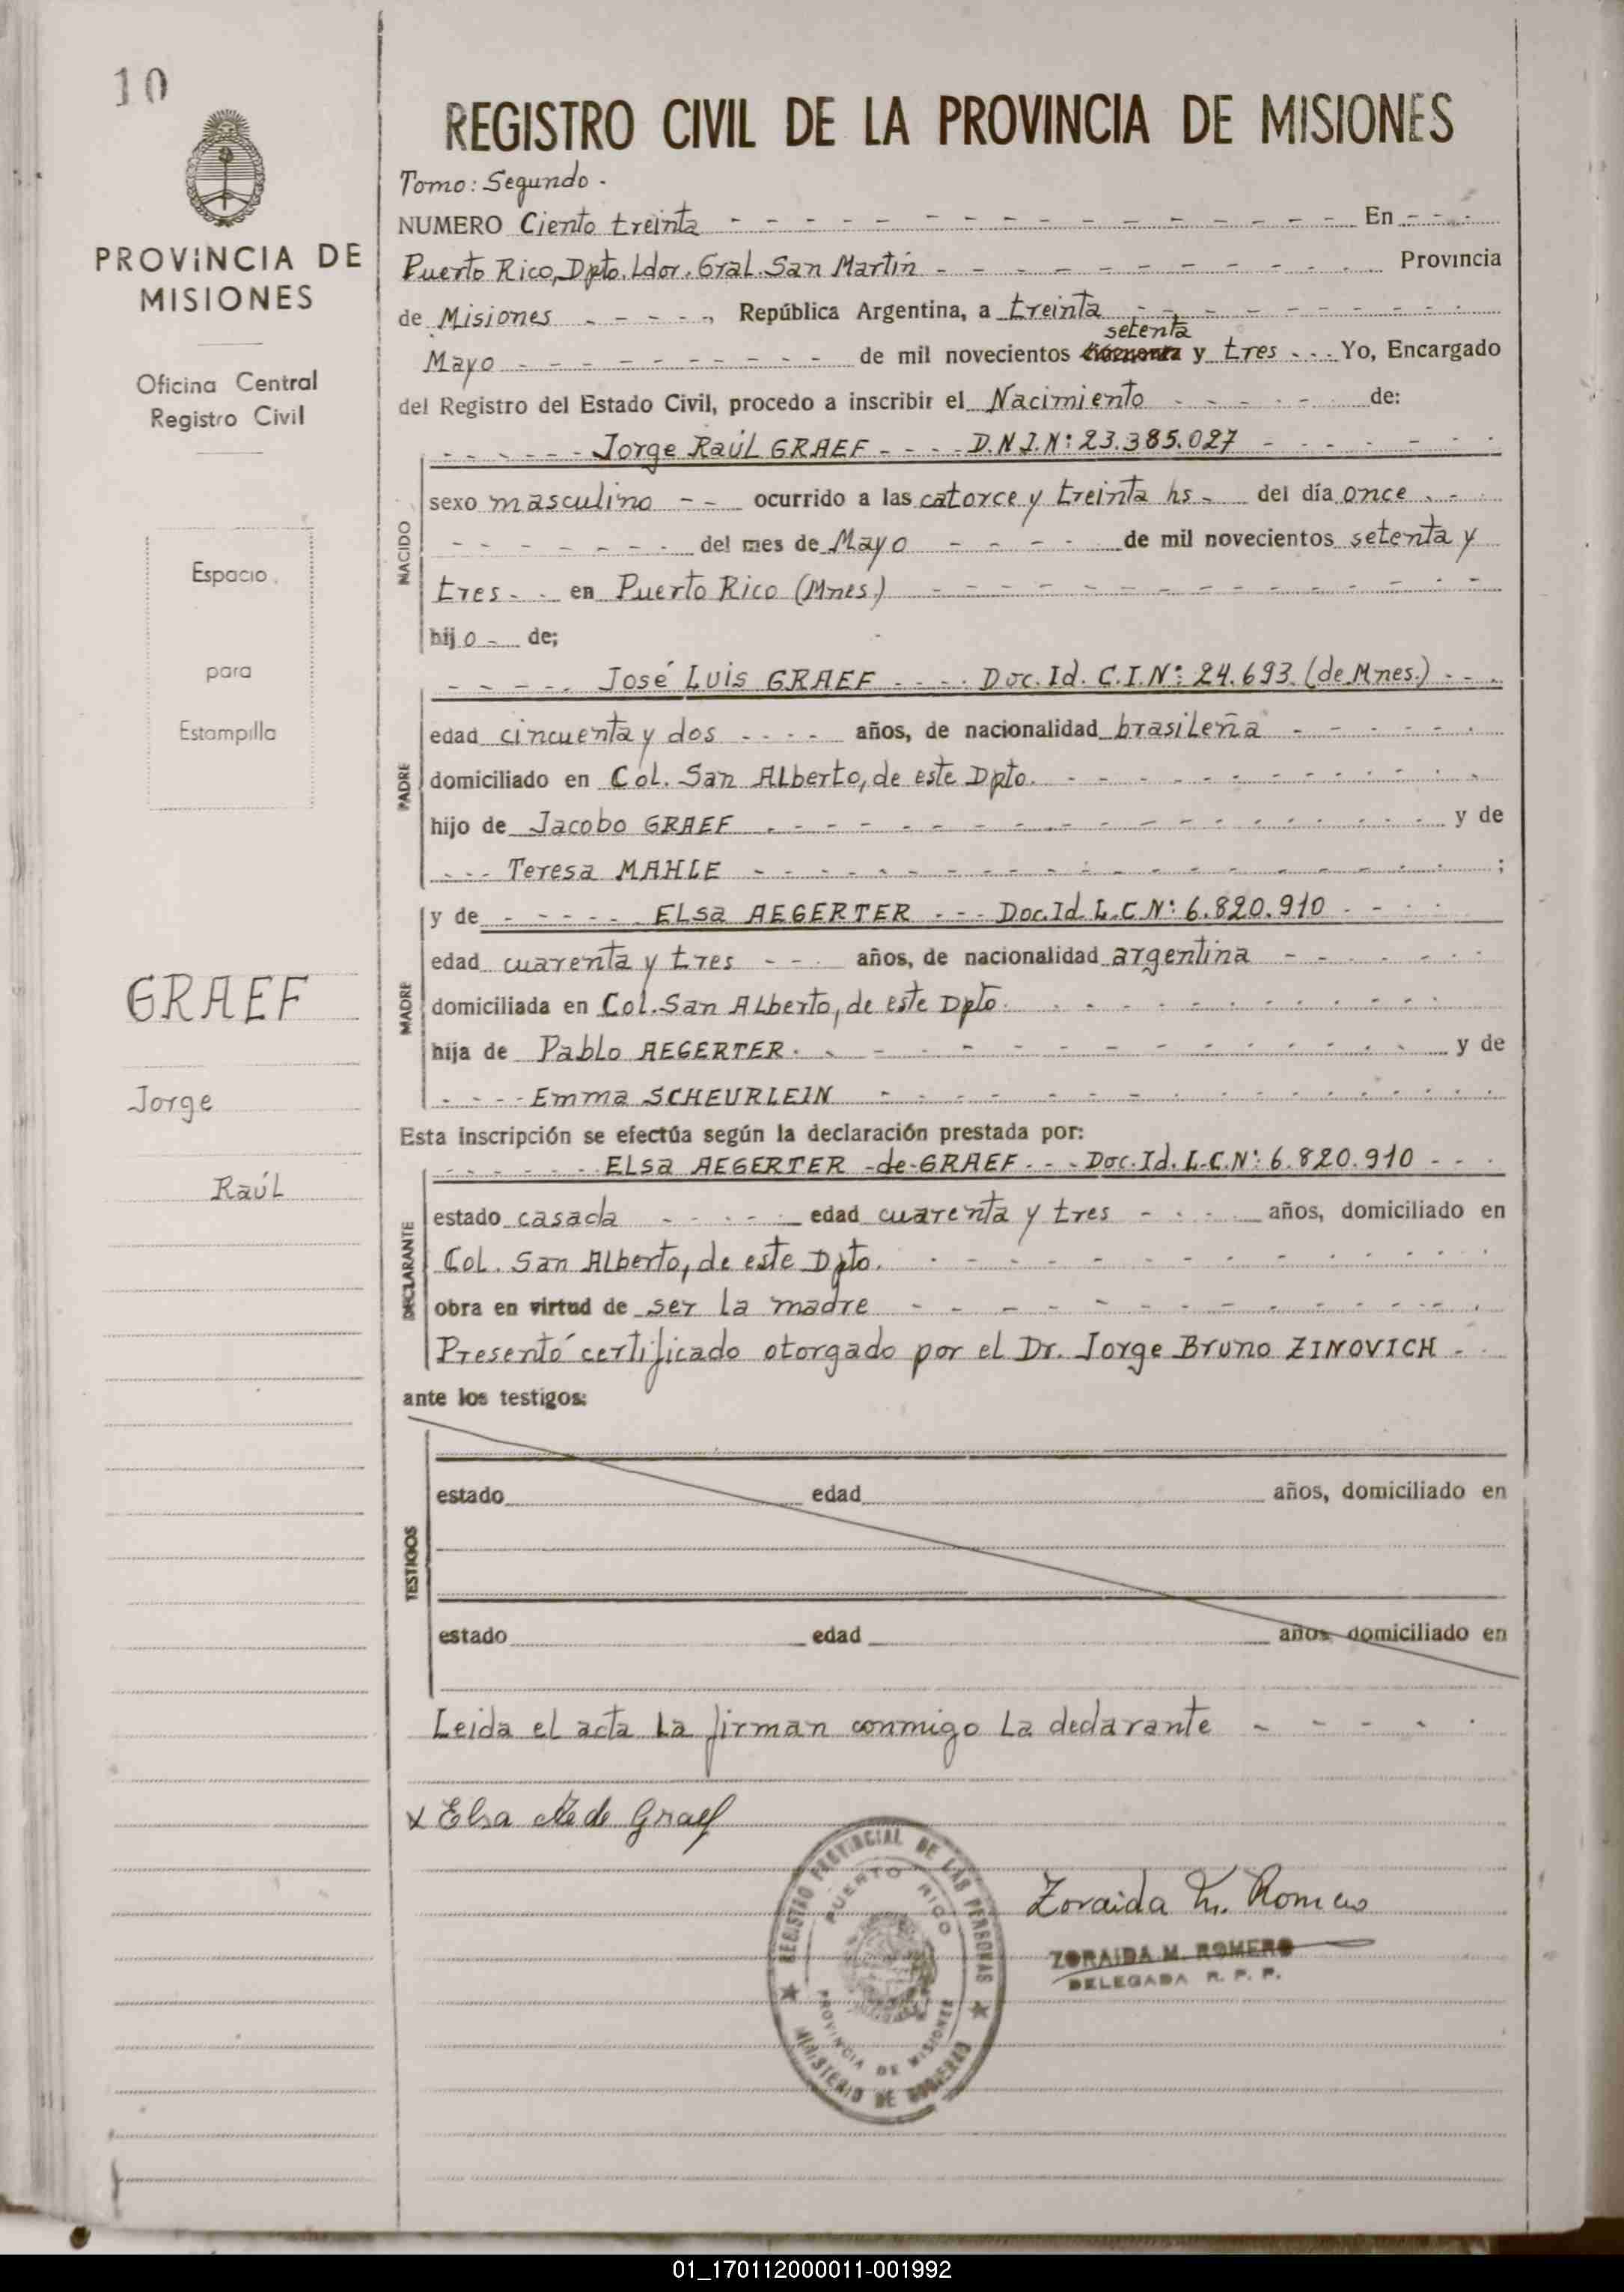 10
PROVINCIA DE
MISIONES
Oficina Central
Registro Civil
Espacio
para
Estampilla
GRAEF
Jorge
Raúl
REGISTRO CIVIL DE LA PROVINCIA DE MISIONES
Tomo: Segundo.
NUMERO Ciento treinta En
Puerto Rico, Dpto. Ldor. Gral. San Martín Provincia
de Misiones, República Argentina, a treinta
setenta
Mayo de mil novecientos y tres Yo, Encargado
del Registro del Estado Civil, procedo a inscribir el Nacimiento de:
Jorge Raúl GRAEF D.N.I.N: 23.385.027
NACIDO
sexo masculino ocurrido a las catorce y treinta hs. del día once
del mes de Mayo de mil novecientos setenta y
tres en Puerto Rico (Mnes.)
hijo de;
José Luis GRAEF Doc. Id. C.I.N: 24.693 (de Mnes.)
PADRE
edad cincuenta y dos años, de nacionalidad brasileña
domiciliado en Col. San Alberto, de este Dpto.
hijo de Jacobo GRAEF y de
Teresa MAHLE ;
y de Elsa AEGERTER Doc. Id. L.C.N: 6.820.910
MADRE
edad cuarenta y tres años, de nacionalidad argentina
domiciliada en Col. San Alberto, de este Dpto.
hija de Pablo AEGERTER y de
Emma SCHEURLEIN
Esta inscripción se efectúa según la declaración prestada por:
Elsa AEGERTER de GRAEF Doc. Id. L.C.N: 6.820.910
DECLARANTE
estado casada edad cuarenta y tres años, domiciliado en
Col. San Alberto, de este Dpto.
obra en virtud de ser la madre
Presentó certificado otorgado por el Dr. Jorge Bruno ZINOVICH
ante los testigos:
TESTIGOS
estado edad años, domiciliado en
estado edad años, domiciliado en
Leida el acta la firman conmigo la declarante
x Elsa de Graef
REGISTRO PROVINCIAL DE LAS PERSONAS
PUERTO RICO
PROVINCIA DE MISIONES
MINISTERIO DE GOBIERNO
Zoraida M. Romero
ZORAIDA M. ROMERO
DELEGADA R. P. P.
01_170112000011-001992